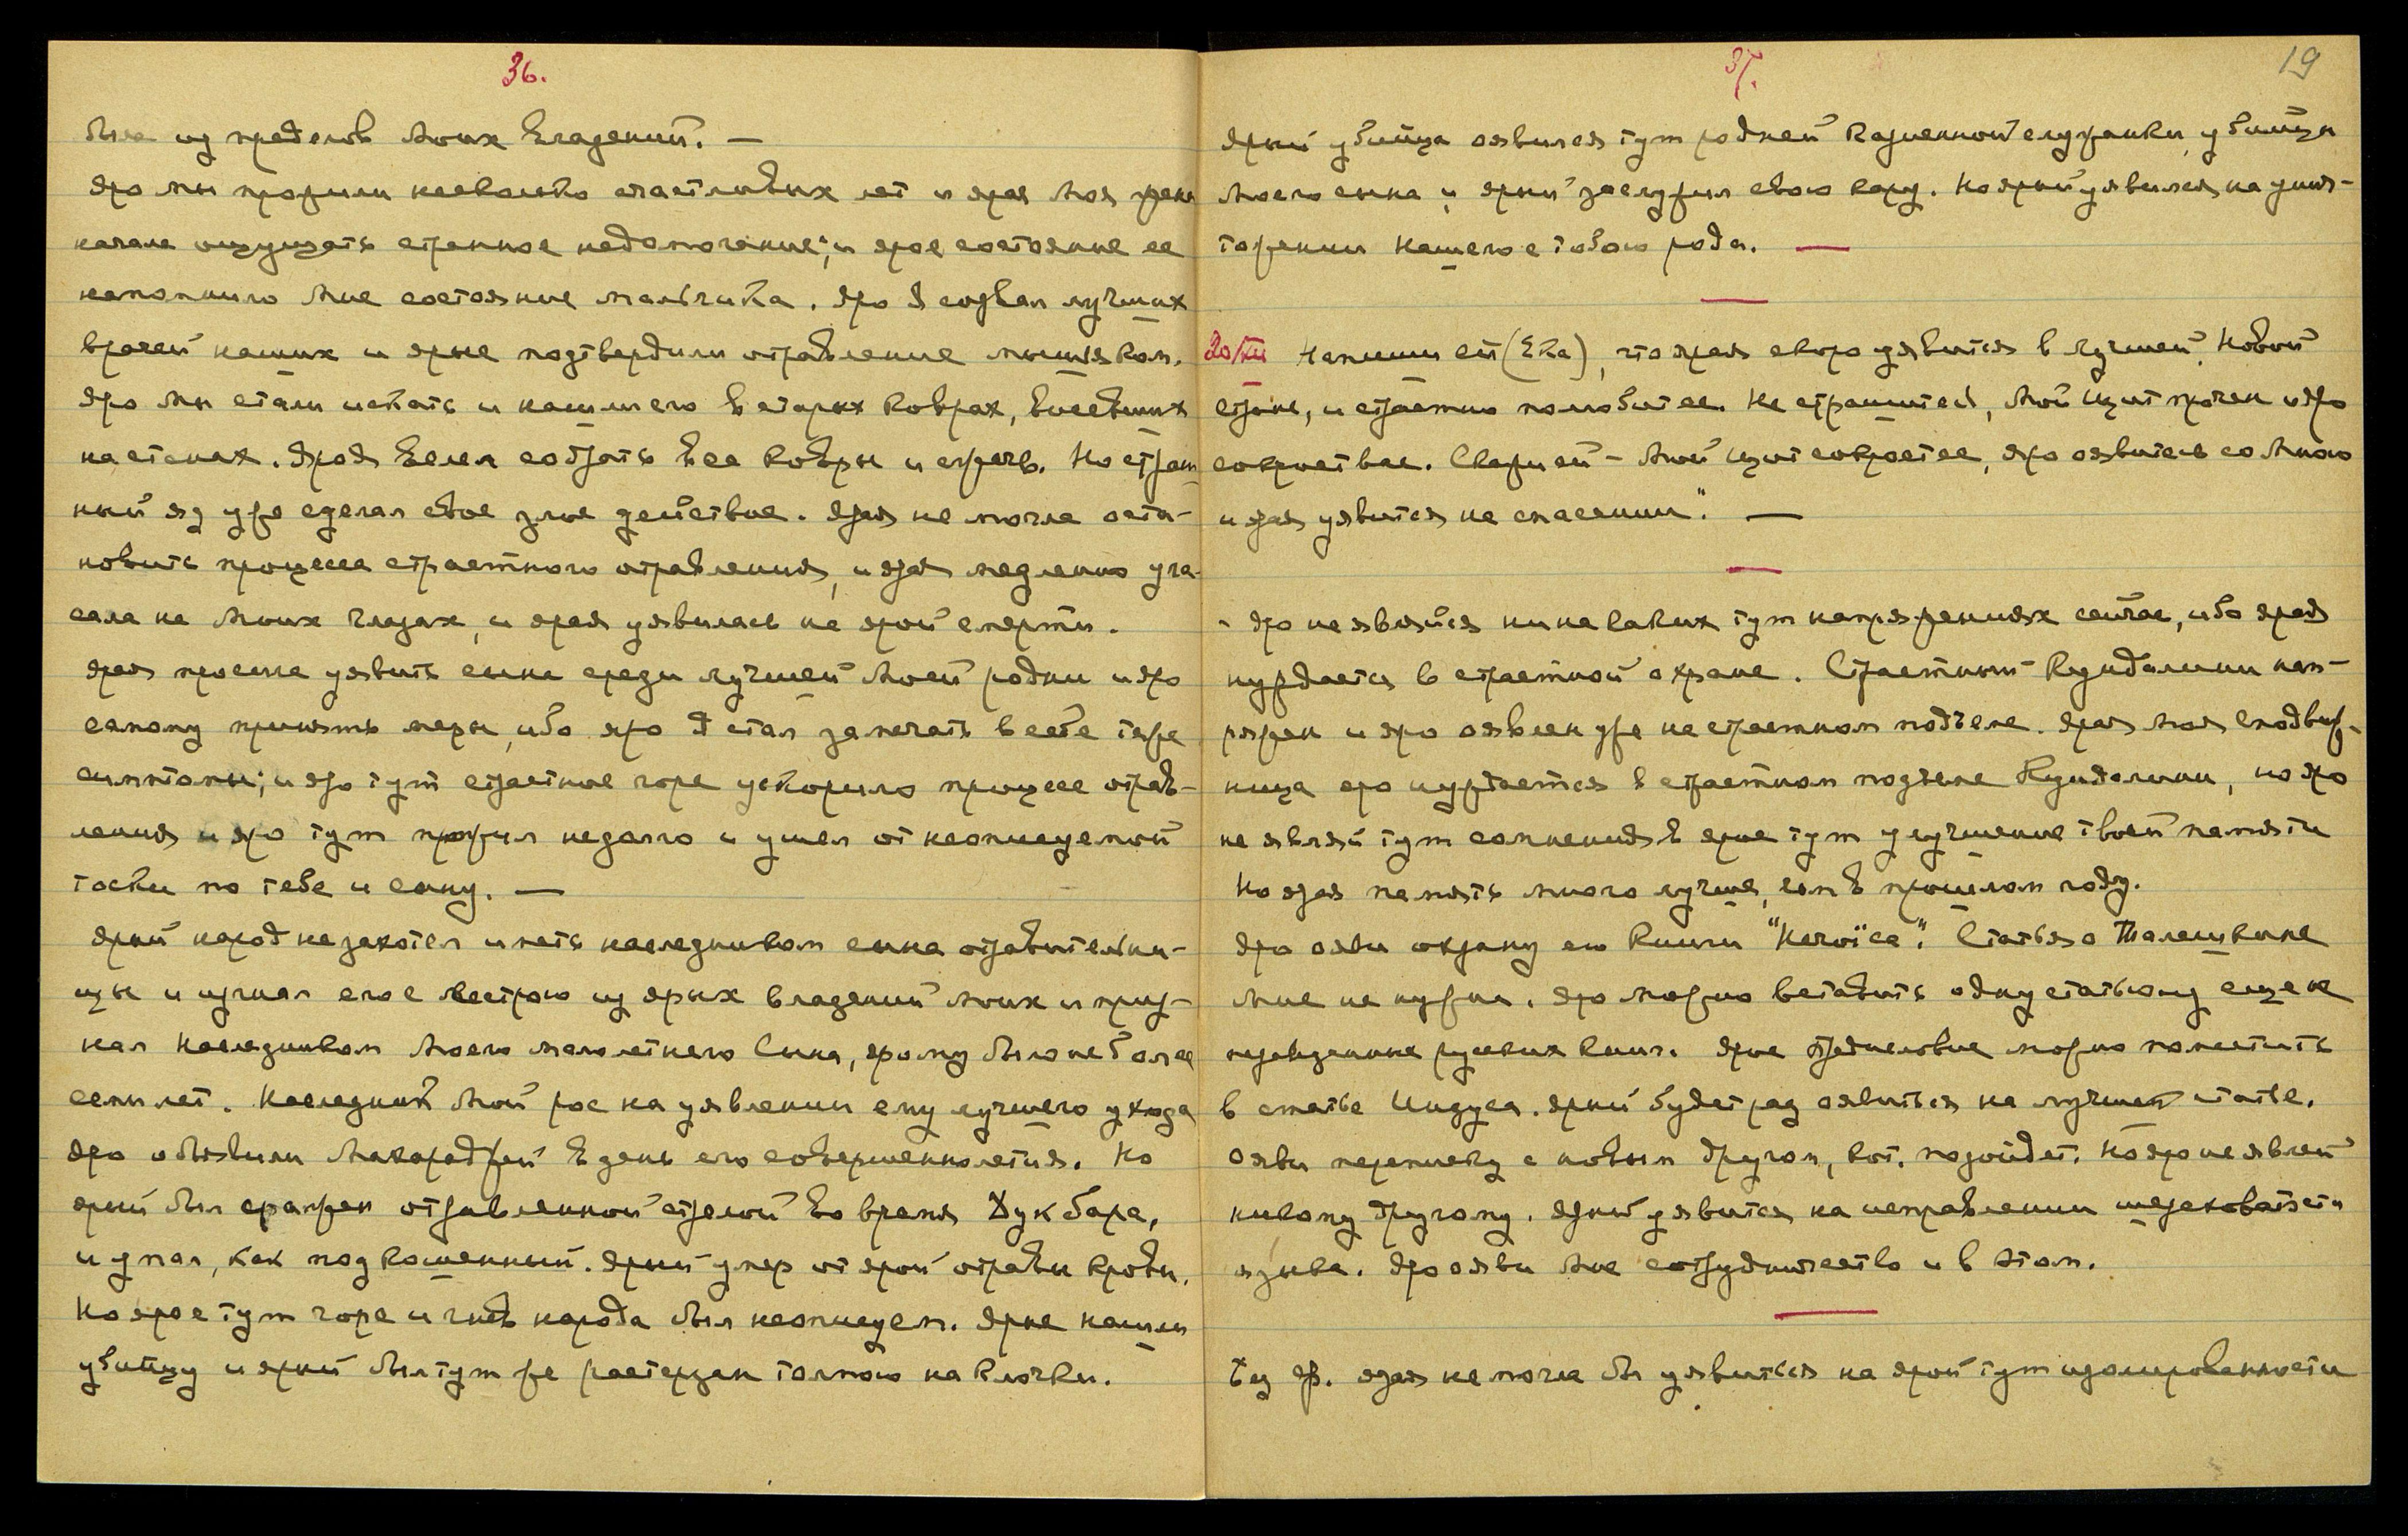 36.
была из пределов Моих Владений. —
Яро мы прожили несколько счастливых лет и ярая Моя жена
начала ощущать странное недомогание; и ярое состояние ее
напомнило Мне состояние мальчика. Яро Я созвал лучших
врачей наших и ярые подтвердили отравление мышьяком.
Яро Мы стали искать и нашли его в старых коврах, висевших
на стенах. Яро Я велел собрать все ковры и сжечь. Но страш-
ный яд уже сделал свое злое действие. Ярая не могла оста-
новить процесса страстного отравления, и ярая медленно уга-
сала на Моих глазах, и ярая уявилась на ярой смерти.
Ярая просила уявить сына среди лучшей Моей родни и яро
самому принять меры, ибо яро Я стал замечать в себе те же
симптомы; и яро тут страстное горе ускорило процесс отрав-
ления и яро тут прожил недолго и ушел от неописуемой
тоски по тебе и сыну. —
Ярый народ не захотел иметь наследником сына отравительни-
цы и изгнал его с сестрою из ярых владений Моих и приз-
нал Наследником Моего малолетнего Сына, ярому было не более
семи лет. Наследник Мой рос на уявлении ему лучшего ухода
Яро объявили Махараджей в день его совершеннолетия. Но
ярый был сражен отравленной стрелой во время Дукбара,
и упал, как подкошенный. Ярый умер от ярой отравы крови.
Но ярое тут горе и гнев народа был неописуем. Ярые нашли
убийцу и ярый был тут же растерзан толпою на клочки.
37.
19
Ярый убийца оявился тут родней казненной служанки, убийцы
Моего сына и ярый заслужил свою кару. Но ярый уявился на унич-
тожении Нашего с тобою рода. —
20/XII Напиши ей (Ека), что ярая скоро уявится в лучшей, Новой
стране, и страстно полюбит ее. Не страшитесь, Мой Щит прочен и яро
сокроет вас. Скажи ей – Мой щит сокроет ее, яро оявитесь со Мною
и ярая уявится на спасении". —
- Яро не являйся ни на каких тут напряжениях сейчас, ибо ярая
нуждается в страстной охране. Страстный Кундалини нап-
ряжен и яро оявлен уже на страстном подъеме. Ярая Моя Сподвиж-
ница яро нуждается в страстном подъеме Кундалини, но яро
не являй тут сомнения в ярое тут улучшение твоей памяти
Но ярая память много лучше, чем в прошлом году.
Яро ояви охрану его книги "Heroïca". Статья о Талашкине
Мне не нужна. Яро можно вставить одну статью из еще не
переведенные русских книг. Ярое предисловие можно поместить
в статье Индуса. Ярый будет рад оявиться на лучшей статье.
Ояви переписку с новым другом, кот. подойдет. Но яро не являй
никому другому. Ярый уявится на исправлении шероховатости
языка. Яро ояви Мне сотрудничество и в этом.
Без яр. ярая не могла бы уявиться на ярой тут изолированности